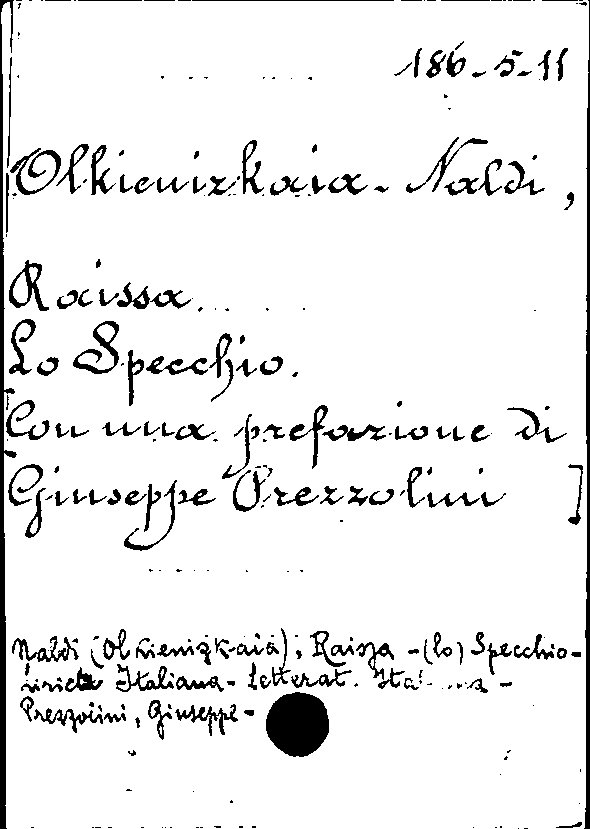 186-5-11
Olkienizkaia-Naldi,
Raissa
Lo Specchio.
[Con una prefazione di
Giuseppe Prezzolini ]
Naldi (Olkienizkaia), Raissa -(lo) Specchio-
Lirica Italiana - Letterat. Italiana -
Prezzolini, Giuseppe -